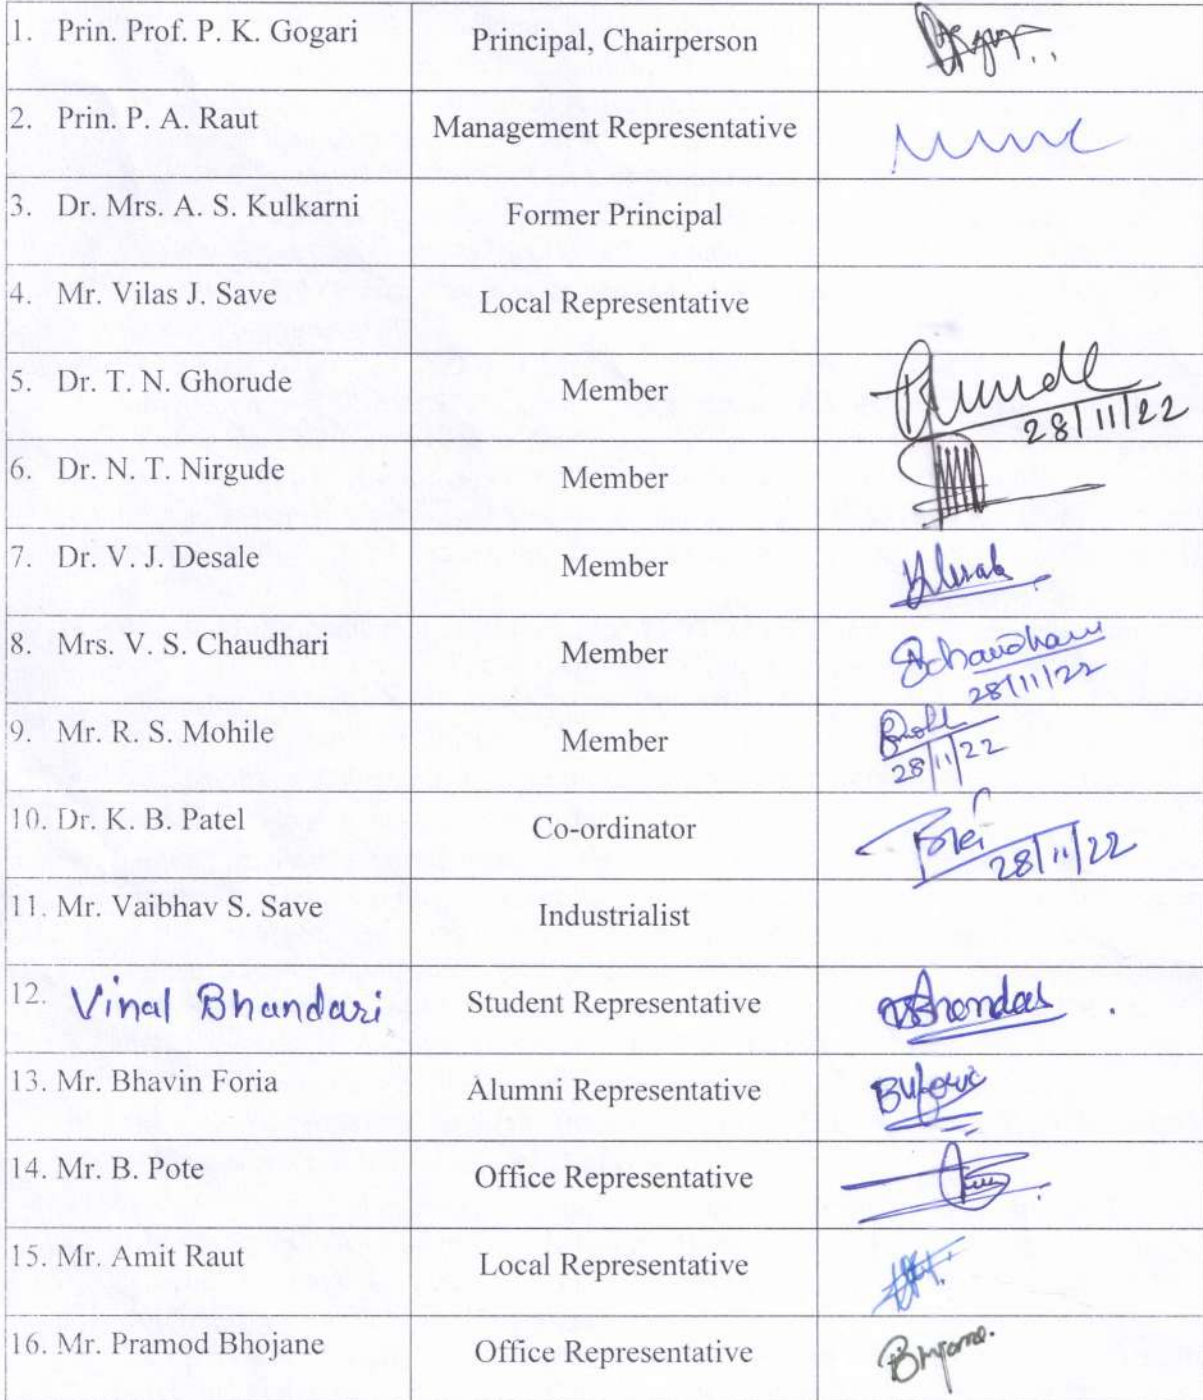 1. Prin. Prof. P. K. Gogari Principal, Chairperson
2. Prin. P. A. Raut Management Representative
3. Dr. Mrs. A. S. Kulkarni Former Principal
4. Mr. Vilas J. Save Local Representative
5. Dr. T. N. Ghorude Member 28/11/22
6. Dr. N. T. Nirgude Member
7. Dr. V. J. Desale Member
8. Mrs. V. S. Chaudhari Member 28/11/22
9. Mr. R. S. Mohile Member 28/11/22
10. Dr. K. B. Patel Co-ordinator 28/11/22
11. Mr. Vaibhav S. Save Industrialist
12. Vinal Bhandari Student Representative
13. Mr. Bhavin Foria Alumni Representative
14. Mr. B. Pote Office Representative
15. Mr. Amit Raut Local Representative
16. Mr. Pramod Bhojane Office Representative